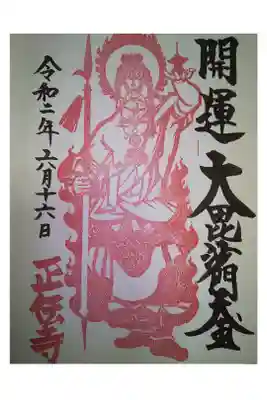 開運大毘沙門天
令和二年六月十六日
正伝寺